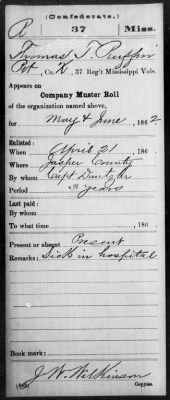 (Confederate.)
R 37 Miss.
Thomas T. Ruffin
Pvt, Co. K, 37 Reg't Mississippi Vols.
Appears on
Company Muster Roll
of the organization named above,
for May & June, 1862.
Enlisted:
When April 21, 186 .
Where Jasper County
By whom Capt
Period 3 years
Last paid:
By whom
To what time , 186 .
Present or absent Present
Remarks: Sick in hospital
Book mark:
J. W. Wilkinson
Copyist.